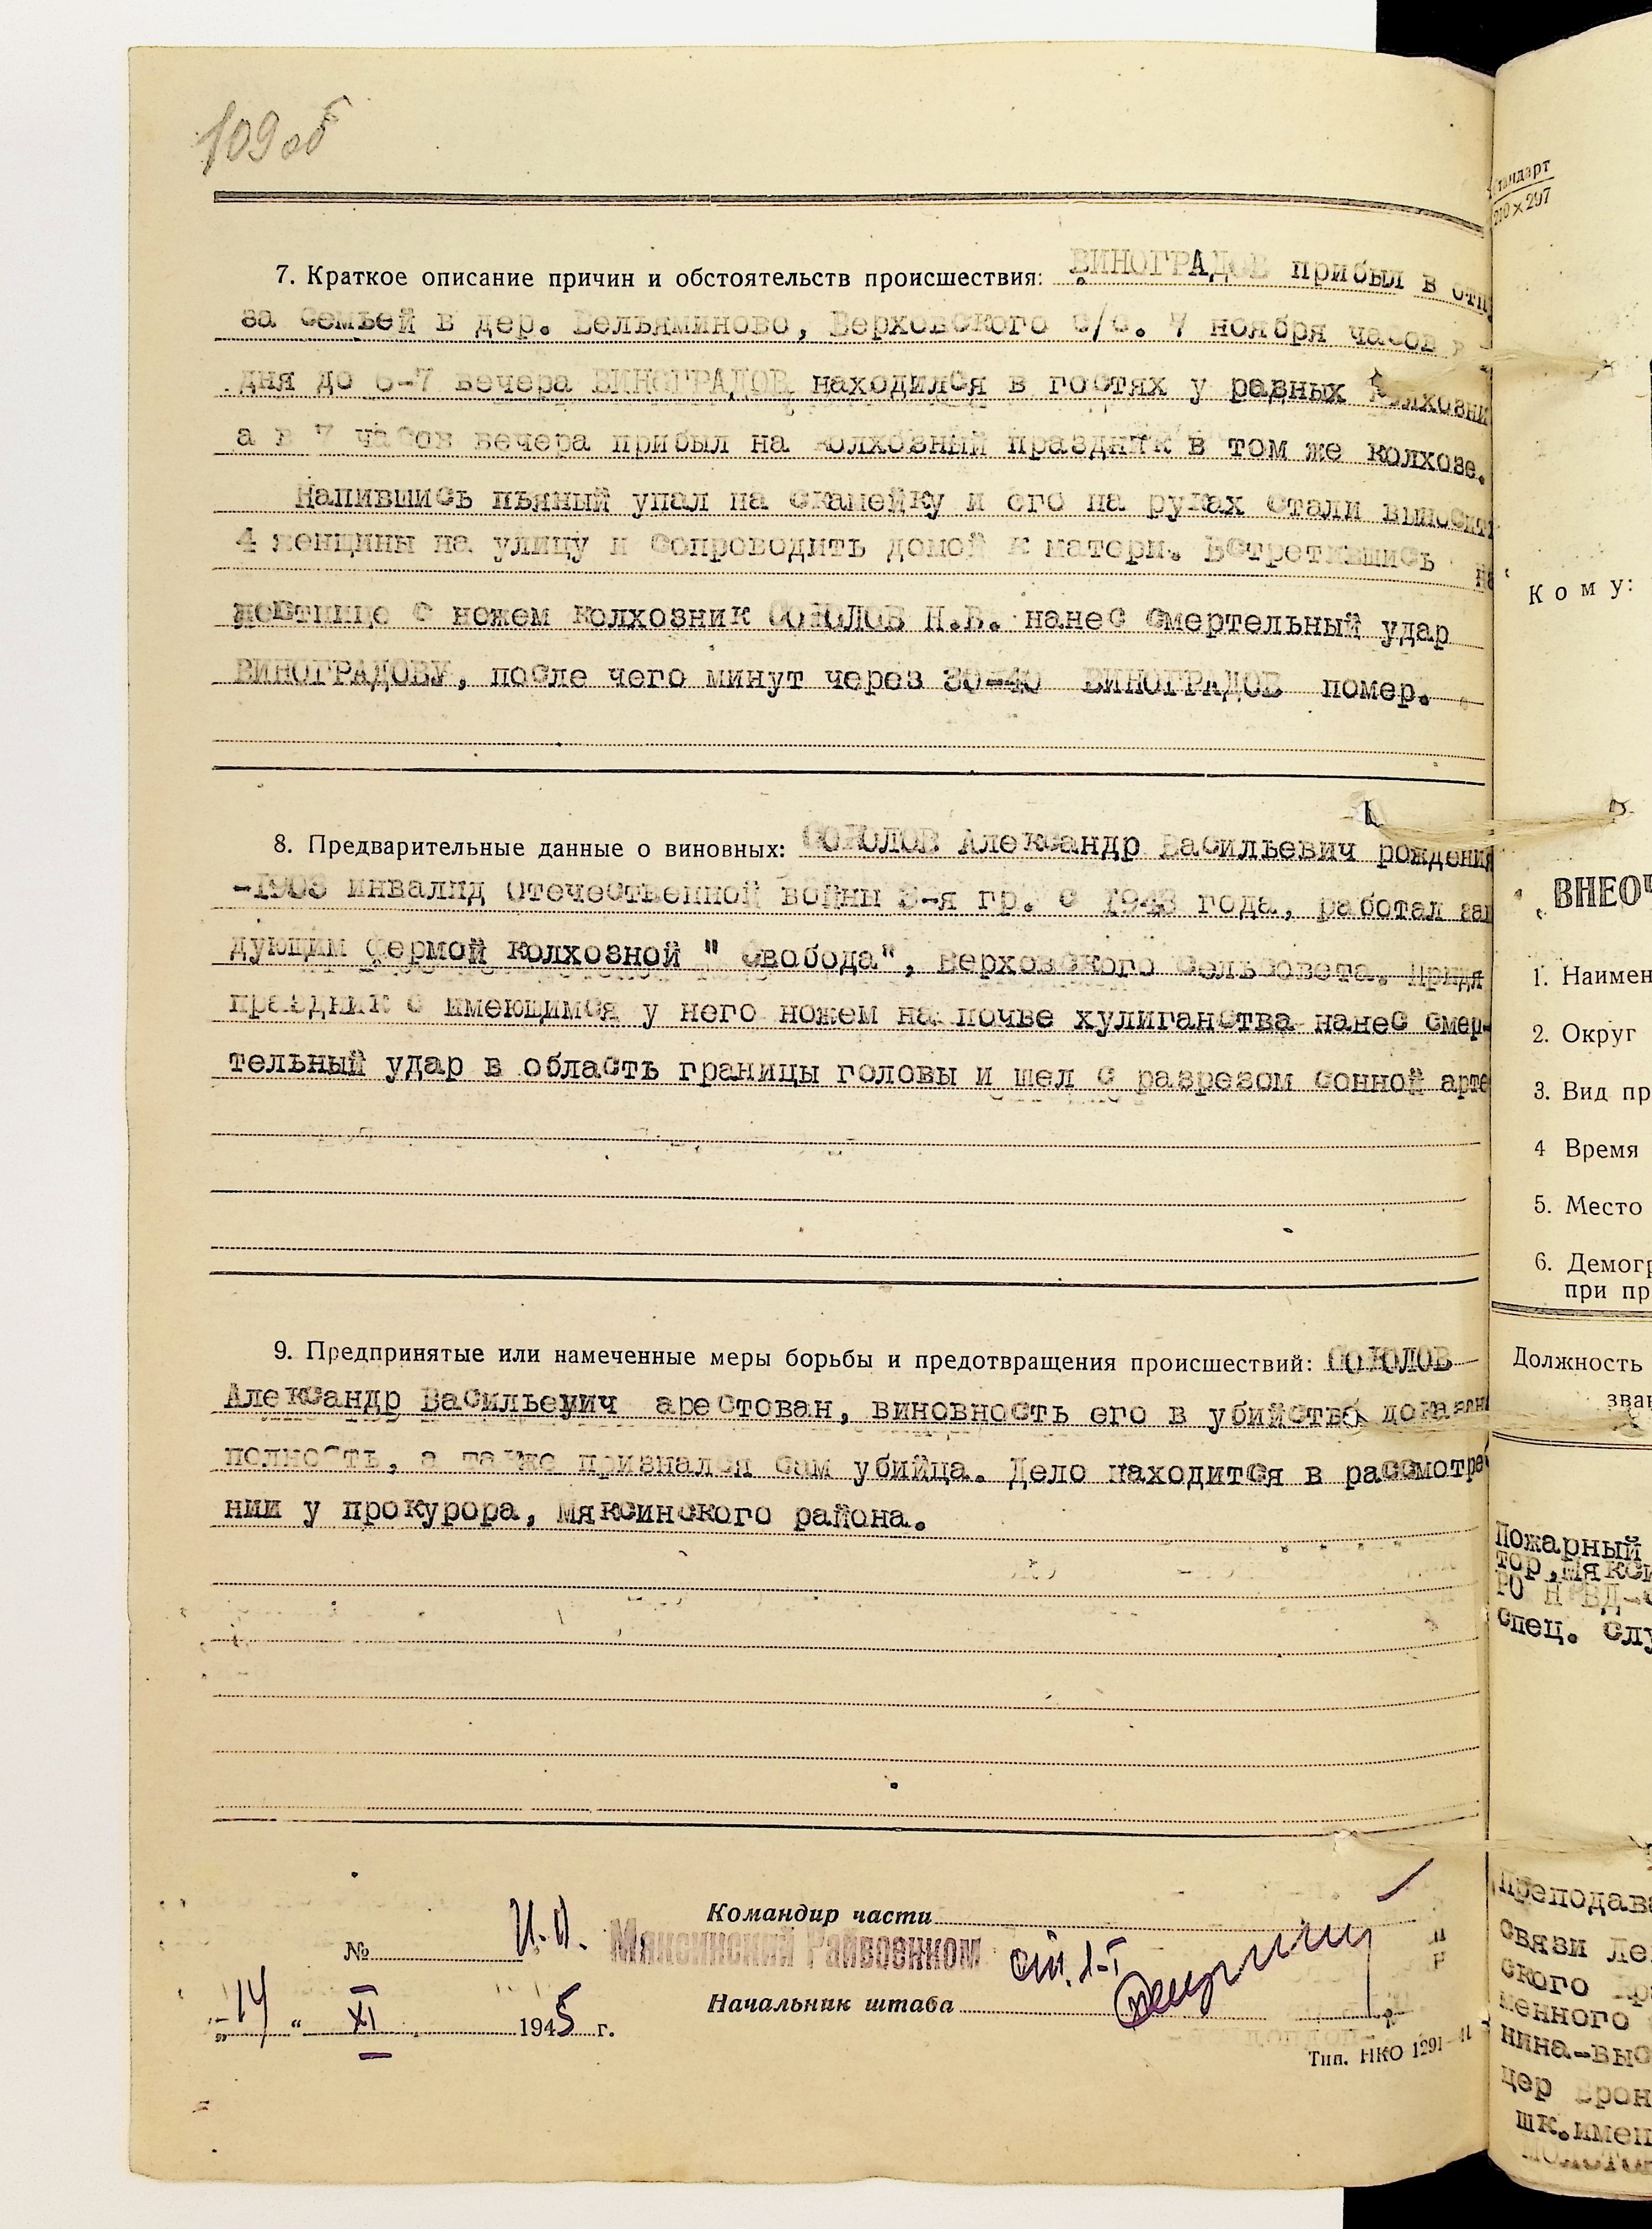 109 об
7. Краткое описание причин и обстоятельств происшествия: ВИНОГРАДОВ прибыл в отп
за семьей в дер. Вельяминово, Верховского с/с. 7 ноября часов в
дня до 6-7 вечера ВИНОГРАДОВ находился в гостях у разных колхозни
а в 7 часов вечера прибыл на колхозный праздник в том же колхозе.
Напившись пьяный упал на скамейку и его на руках стали выносить
4 женщины на улицу и сопроводить домой к матери. Встретившись на
лестнице с ножем колхозник СОКОЛОВ Н.В. нанес смертельный удар
ВИНОГРАДОВУ, после чего минут через 30-40 ВИНОГРАДОВ помер.
8. Предварительные данные о виновных: СОКОЛОВ Александр Васильевич рождения
-1903 инвалид Отечественной войны 3-я гр. с 1943 года, работал зав
дующим фермой колхозной " Свобода", Верховского сельсовета. Придя
праздник с имеющимся у него ножем на почве хулиганства нанес смер-
тельный удар в область границы головы и шел с разрезом сонной арте
9. Предпринятые или намеченные меры борьбы и предотвращения происшествий: СОКОЛОВ
Александр Васильевич арестован, виновность его в убийстве доказана
полность, а также признался сам убийца. Дело находится в рассмотре
нии у прокурора, Мяксинского района.
Командир части
№ И.О. Мяксинский Райвоенком ст. л-т
Начальник штаба
„14“ XI 1945 г.
Тип. НКО 1291—41
Стандарт
210×297
Кому:
ВНЕОЧ
1. Наимен
2. Округ
3. Вид пр
4 Время
5. Место
6. Демогр
при пр
Должность
зван
Пожарный
тор, Мякси
РО НКВД-
спец. слу
Преподава
связи Ле
ского
менного
нина-выс
цер
шк.имен